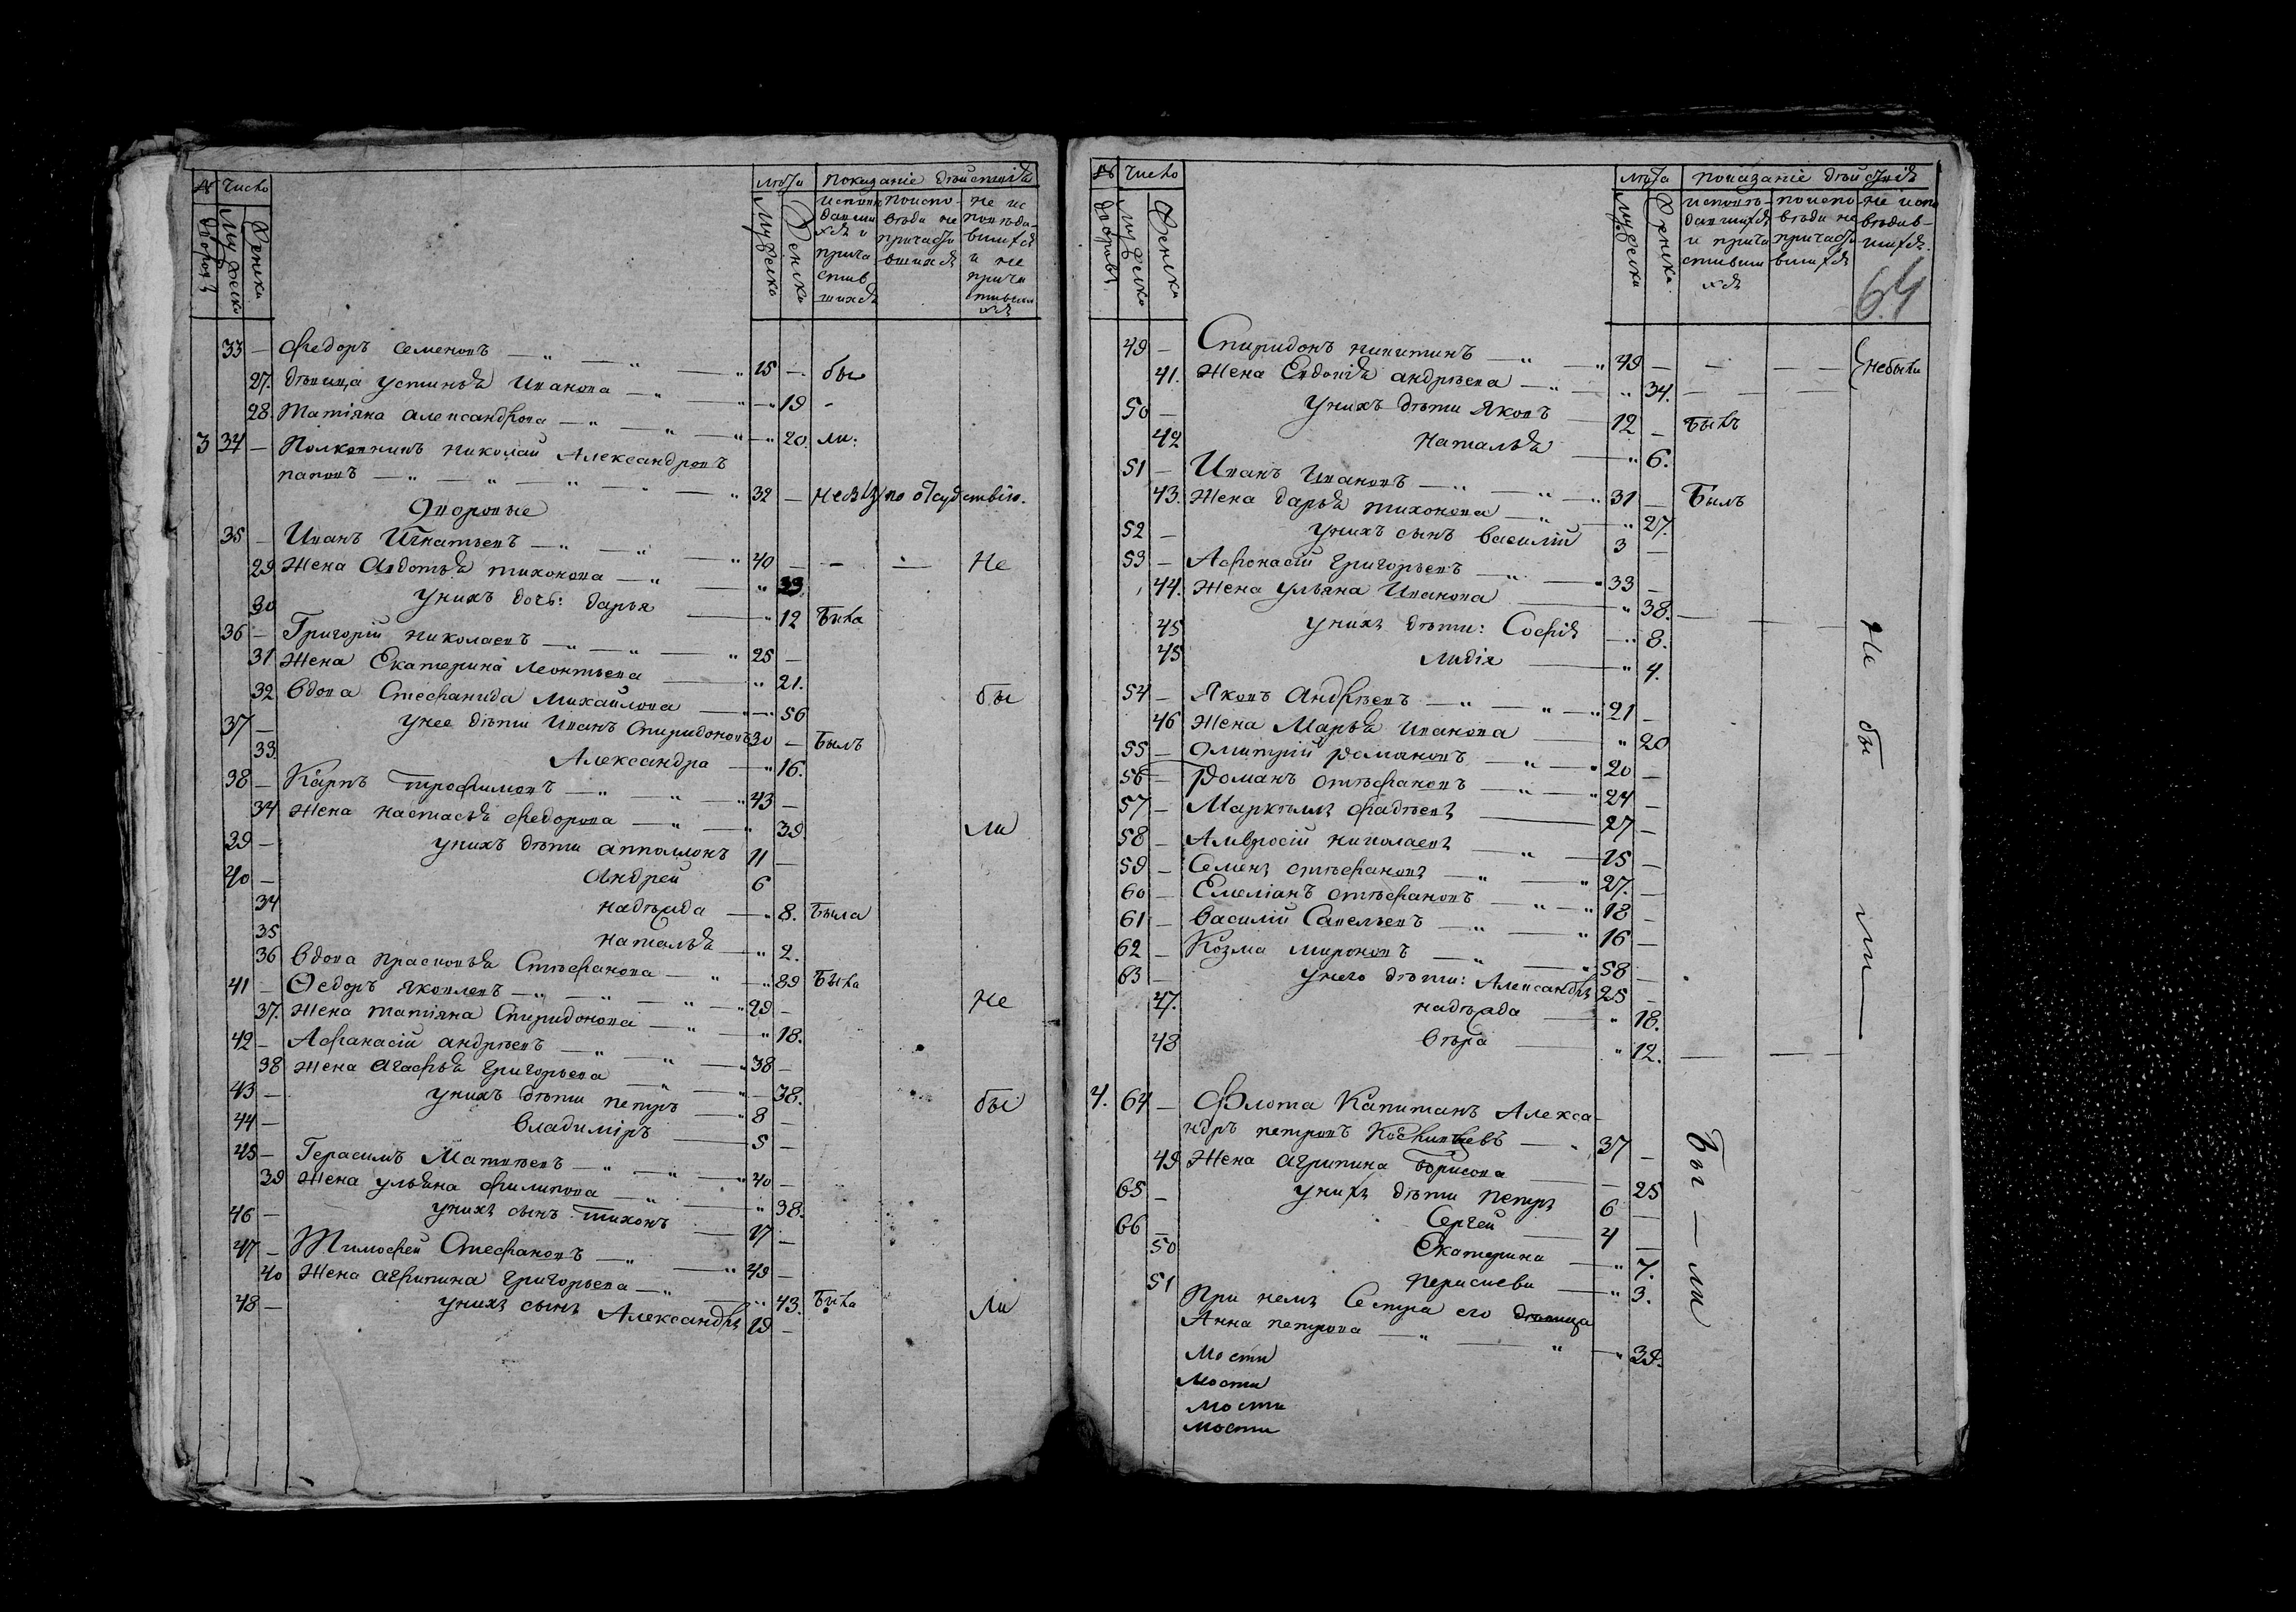 № Число лѣта показаніе дѣйствія
дворов мужеска женска мужеска женска
исповѣдавшихся и причастившихся
исповѣди не причастившихся
не исповѣдавшихся и не причастившихся
33 — Федоръ Семеновъ — 15 — бы
27. дѣвица Устинья Иванова — 19 -
28. Татіяна Александрова — 20. ли:
3 34 — Полковникъ Николай Александровъ
паповъ — 32 — по отсудствію.
Дворовые
35 — Иванъ Игнатьевъ — 40 — — — Не
29 Жена Авдотья тихонова — 33.
30 у нихъ дочь: дарья — 12 Была
36 — Григорій николаевъ — 25 —
31 Жена Екатерина Леонтьева — 21.
32 вдова Стефанида Михайлова — 56 бы
37 — у нее дѣти Иванъ Спиридоновъ 30 — Былъ
33 Александра — 16.
38 — Карпъ трофимовъ — 43 —
34 Жена настасья федорова — 39 ли
39 — у нихъ дѣти апполлонъ 11 —
40 — Андрей 6
34 надѣжда — 8. Была
35 наталья — 2.
36 вдова прасковья Стѣфанова — 89 Была
41 — Ѳедоръ яковлевъ — 29 — не
37. Жена татіяна Спиридонова — 18.
42 — Афанасій андрѣевъ — 38 —
38 Жена Агафья григорьева — 38.
43 — у нихъ дѣти петръ — 8 — бы
44 — владиміръ — 5 —
45 — Герасимъ Матвѣевъ — 40 —
39 Жена ульяна филипова — 38.
46 — у нихъ сынъ тихонъ 17 —
47 — Тимофей Стефановъ — 49 —
40 Жена агрипина григорьева — 43. Была
48 — у нихъ сынъ Александръ 19 — Ли
№ Число лѣта показаніе дѣйствія
дворовъ мужеска женска мужеска женска
исповѣдавшихся и причастившихся
исповѣди не причастившихся
не исповѣдавшихся.
64
49 — Спиридонъ никитинъ — 49 — — — — небыли
41. Жена Евдокія андрѣева — 34. —
50 — у нихъ дѣти яковъ — 12 — Былъ
42 наталья — 6.
51 — Иванъ Ивановъ — 31 — Былъ
43. Жена дарья тихонова — 27.
52 — у нихъ сынъ василій 3 —
53 — Афонасій григорьевъ — 33 —
44. Жена ульяна Иванова — 38. —
45 у нихъ дѣти: Софія — 8.
45 лидія — 4.
Не бы ли
54 — Яковъ Андрѣевъ — 21 —
46 Жена Марья иванова — 20
55 — Дмитрій романовъ — 20 —
56 — Романъ стѣфановъ — 24 —
57 — фадѣевъ — 27 —
58 — Амвросій николаевъ — 15 —
59 — Семенъ стѣфановъ — 27. —
60 — Емеліанъ стѣфановъ — 18 —
61 — василій Савельевъ — 16 —
62 — Козма мироновъ — 58 —
63 — у него дѣти: Александръ 25 —
47. надѣжда — 18.
48 вѣра — 12. — —
4. 64 — Флота Капитанъ Алекса-
ндръ петровъ — 37 —
49 Жена агрипина Борисова — 25
65 — у нихъ дѣти петръ 6 —
66 — Сергей — 4 —
50 Екатерина — 7.
51 — 3.
Бы — ли
При немъ Сестра его дѣвица
Анна петрова — 39.
Мости
Мости
Мости
Мости